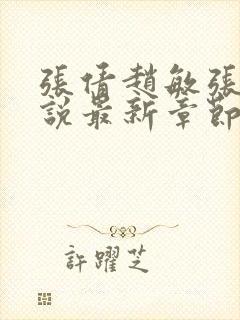 張倩趙敏張
說最新章節
許躍芝